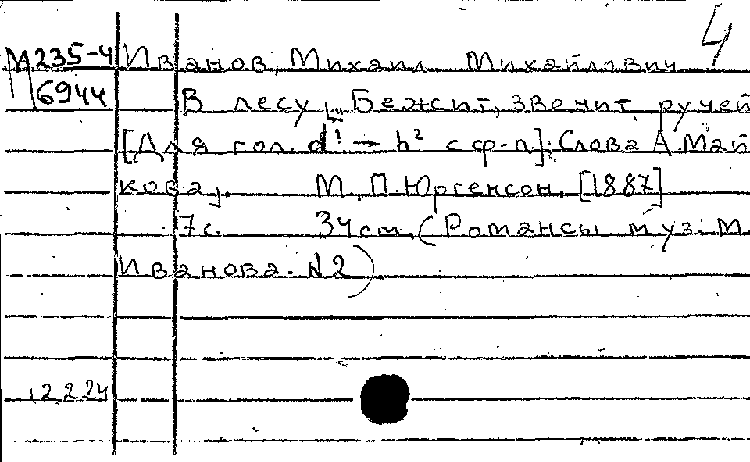 4
М 235-4 Иванов, Михаил Михайлович
6944 В лесу. Бежит, звенит ручей
[Для гол. d¹ – h² с ф-п]. Слова А. Май
кова. М. П. Юргенсон, [1887]
7с. 34 см. (Романсы муз. М.
Иванова. N2)
12224